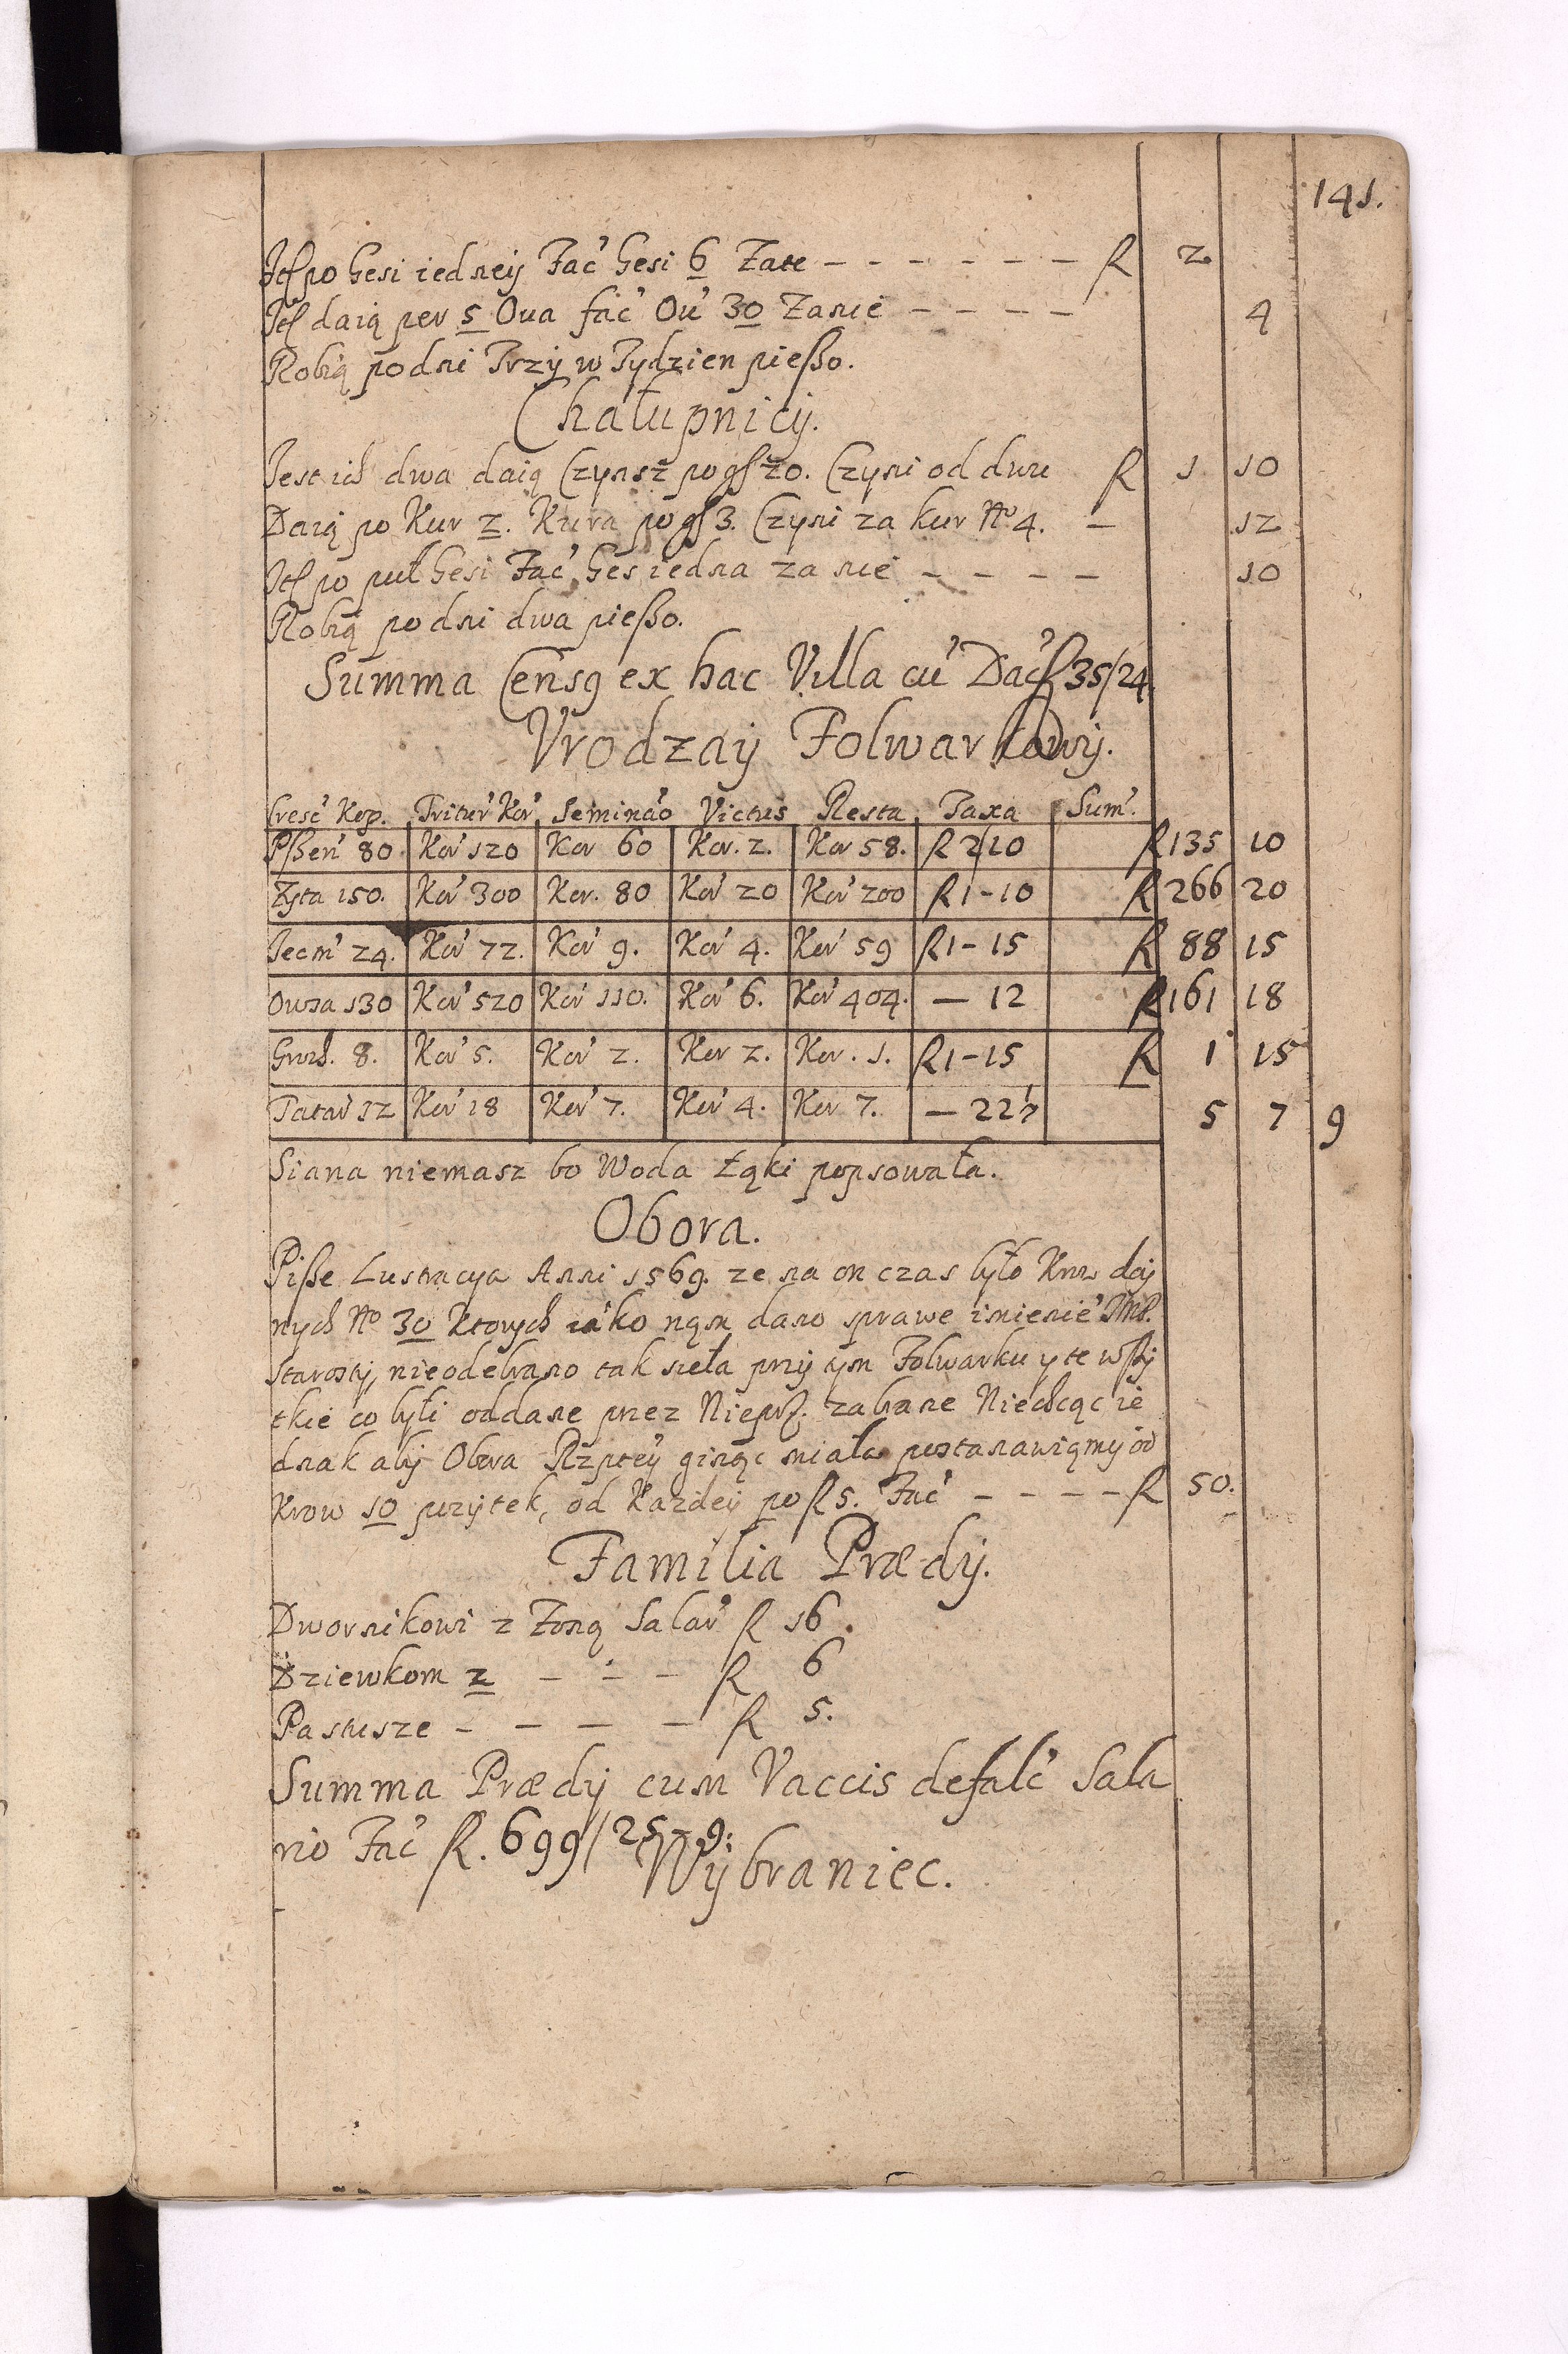 141.
Itē po Gesi iedneÿ Fac̄ Gesi 6 Zate – – – – – – fl 2
Itē daią per 5 Oua fac̄ Ou' 30 Zanie – – – – 4
Robią podni Trzÿ w Tydzien pießo.
Chałupnicÿ.
Jest ich dwa daią Czynsz po gr 20. Czyni od dwu fl 1 10
Daią po Kur 2. Kura po gr 3. Czyni za kur No 4. – 12
Itē po puł Gesi Fac̄ Ges iedna za nie – – – – 10
Robią po dni dwa pießo.
Summa Censq ex hac Villa cū Dac̄ fl 35/24
Vrodzaÿ Folwarkowÿ.
Cresc̄ Kop. Tritur̄ Kor̄ Seminac̄o Victus Resta Taxa Sum̄.
Pßen̄ 80 Kor̄ 120 Kor 60 Kor. 2. Kor 58. fl 2/10 fl 135 10
Zyta 150. Kor̄ 300 Kor. 80 Kor̄ 20 Kor̄ 200 fl 1-10 fl 266 20
Jecm̄ 24. Kor̄ 72. Kor̄ 9. Kor̄ 4. Kor̄ 59 fl 1-15 fl 88 15
Owsa 130 Kor̄ 520 Kor̄ 110. Kor̄ 6. Kor̄ 404. – 12 fl 161 18
Groch. 8. Kor̄ 5. Kor̄ 2. Kor 2. Kor. 1. fl 1-15 fl 1 15
Tatar̄ 12 Kor̄ 18 Kor̄ 7. Kor̄ 4. Kor 7. – 22½ 5 7 9
Siana niemasz bo Woda Łąki popsowała.
Obora.
Piße Lustracya Anni 1569. ze na on czas było Krow doÿ
nych No 30 Ktorych iako nąm dano sprawe imienie' JMP.
Starostÿ, nieodebrano tak wiela przÿ tÿm Folwarku y te wßÿ
tkie co byłi oddane przez Niepr. zabrane Niechcąc ie
dnak abÿ Obora Rzpteÿ ginąc miała postanawiąmÿ od
Krow 10 pozÿtek, od Kazdeÿ po fl 5. Fac̄ – – – – fl 50.
Familia Prædÿ.
Dwornikowi z Zoną Salar̄ fl 16.
Dziewkom 2 – – – fl 6
Pastusze – – – – fl 5.
Summa Prædÿ cum Vaccis defalc̄ Sala
rio Fac̄ fl. 699/25–9:
Wÿbraniec.